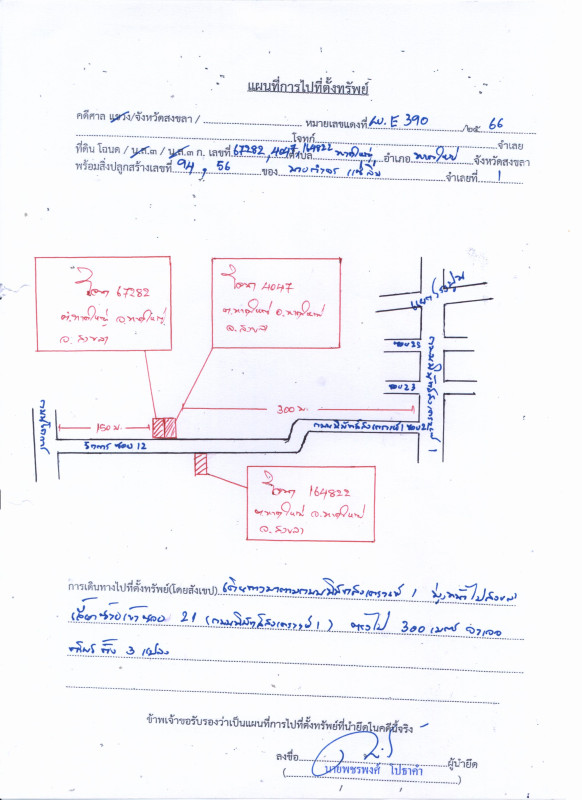 แผนที่การไปที่ตั้งทรัพย์
คดีศาล แขวง/จังหวัดสงขลา / หมายเลขแดงที่ ผบ.E 390 /๒๕ 66
โจทก์ จำเลย
ที่ดิน โฉนด / น.ส.๓ / น.ส.๓ ก. เลขที่ 67282, 4047, 164822 ตำบล หาดใหญ่ อำเภอ หาดใหญ่ จังหวัดสงขลา
พร้อมสิ่งปลูกสร้างเลขที่ 94, 56 ของ จำเลยที่ 1
โฉนด 67282
ต.หาดใหญ่ อ.หาดใหญ่
จ.สงขลา
โฉนด 4047
ต.หาดใหญ่ อ.หาดใหญ่
จ.สงขลา
ซอย 35
ซอย 23
300 ม.
150 ม.
ซอย 21
ซอย 12
โฉนด 164822
ต.หาดใหญ่ อ.หาดใหญ่
จ.สงขลา
การเดินทางไปที่ตั้งทรัพย์(โดยสังเขป) 1
เลี้ยวซ้ายเข้าซอย 21 ตรงไป 300 เมตร จะเจอ
ทรัพย์ ทั้ง 3 แปลง
ข้าพเจ้าขอรับรองว่าเป็นแผนที่การไปที่ตั้งทรัพย์ที่นำยึดในคดีนี้จริง
ลงชื่อ ผู้นำยึด
( นายพชรพงศ์ โปธาคำ )